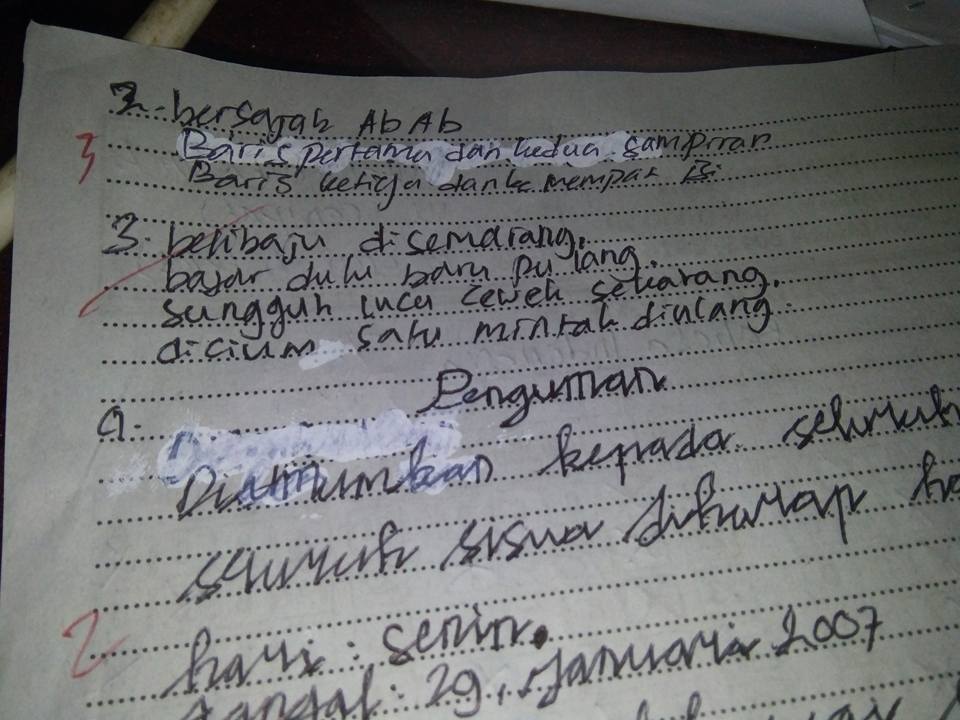 2. bersajak Ab Ab
3 Baris pertama dan kedua sampiran
Baris ketiga dan ke mempat isi
3. belibaju disemarang.
bayar dulu baru pulang.
sungguh lucu cewek sekarang.
dicium satu mintak diulang.
Penguman
9. Diumumkan kepada seluruh
seluruh siswa diharap ha
2 hari : senin.
tanggal : 29, Januari 2007